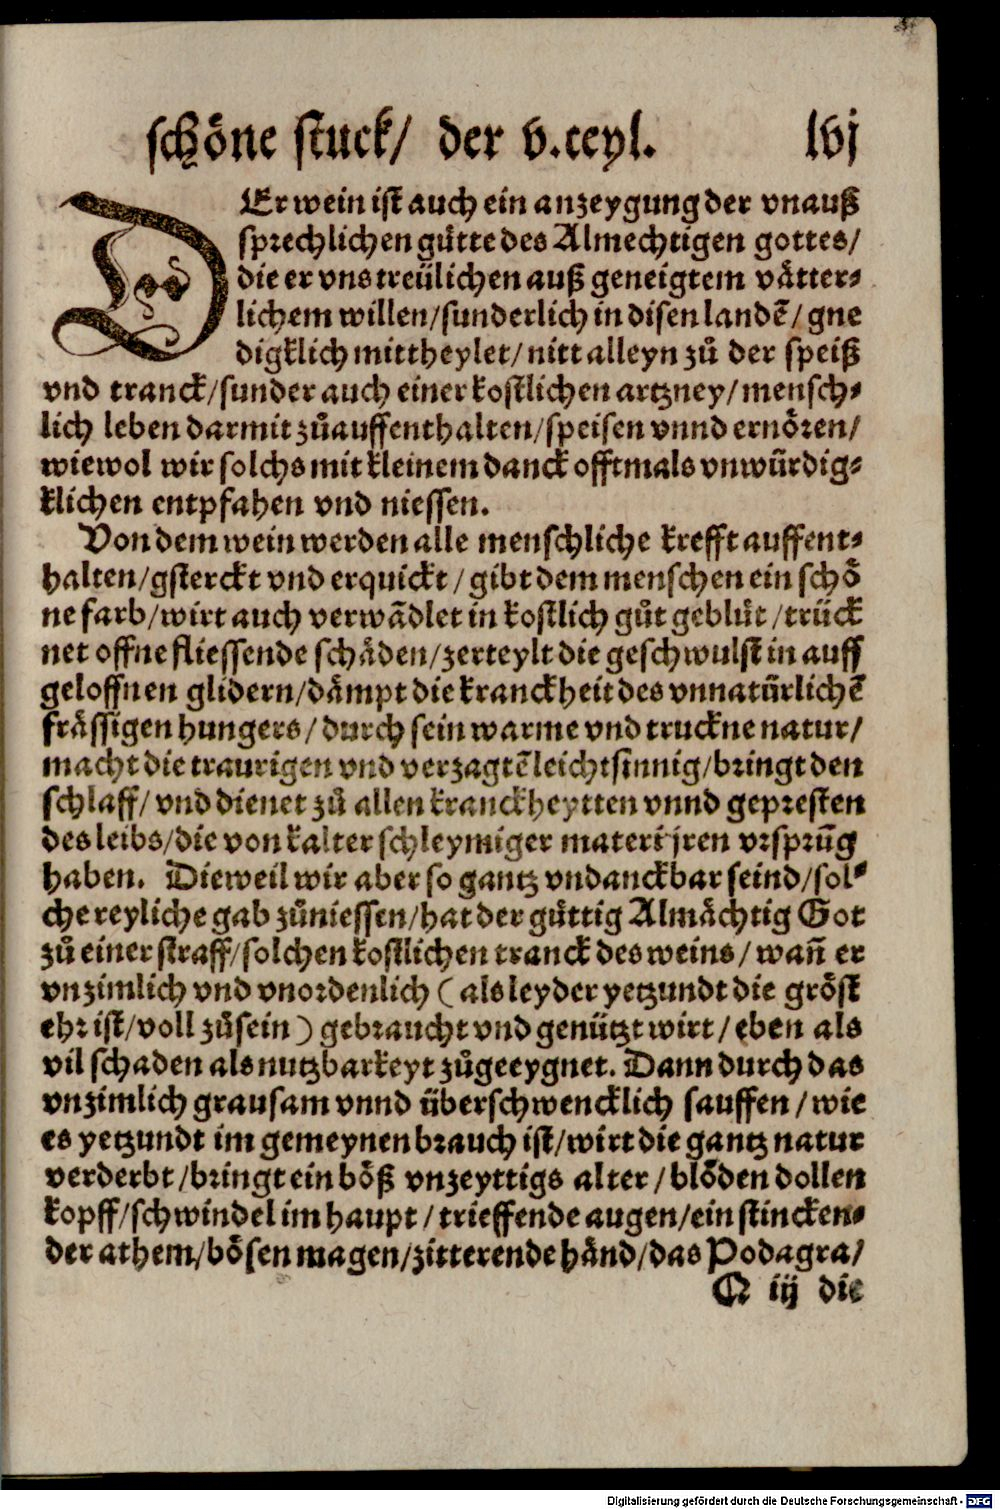 schöne stuck/ der v.teyl. lvj
DEr wein ist auch ein anzeygung der vnauß
sprechlichen gütte des Almechtigen gottes/
die er vns treülichen auß geneigtem vätter-
lichem willen/sunderlich in disen landē/ gne
digklich mittheylet/nitt alleyn zů der speiß
vnd tranck/sunder auch einer kostlichen artzney/mensch-
lich leben darmit zůauffenthalten/speisen vnnd ernören/
wiewol wir solchs mit kleinem danck offtmals vnwürdig-
klichen entpfahen vnd niessen.
Von dem wein werden alle menschliche krefft auffent-
halten/gsterckt vnd erquickt/gibt dem menschen ein schö
ne farb/wirt auch verwādlet in kostlich gůt geblüt/trück
net offne fliessende schäden/zerteylt die geschwulst in auff
geloffnen glidern/dämpt die kranckheit des vnnatürlichē
frässigen hungers/durch sein warme vnd truckne natur/
macht die traurigen vnd verzagtē leichtsinnig/bringt den
schlaff/vnd dienet zů allen kranckheytten vnnd gepresten
des leibs/die von kalter schleymiger materi jren vrsprūg
haben. Dieweil wir aber so gantz vndanckbar seind/sol-
che reyliche gab zůniessen/hat der güttig Almächtig Got
zů einer straff/solchen kostlichen tranck des weins/wañ er
vnzimlich vnd vnordenlich (als leyder yetzundt die gröst
ehr ist/voll zůsein) gebraucht vnd genützt wirt/eben als
vil schaden als nutzbarkeyt zůgeeygnet. Dann durch das
vnzimlich grausam vnnd überschwencklich sauffen/wie
es yetzundt im gemeynen brauch ist/wirt die gantz natur
verderbt/bringt ein böß vnzeyttigs alter/blöden dollen
kopff/schwindel im haupt/trieffende augen/ein stincken-
der athem/bösen magen/zitterende händ/das Podagra/
Q iij die
Digitalisierung gefördert durch die Deutsche Forschungsgemeinschaft - DFG